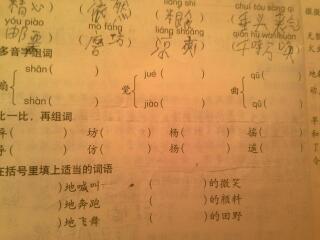 liáng shi chuí tóu sàng qì
精心
粮食 垂头丧气
yóu piào mò fáng liáng shuǎng qiān hū wàn huàn
邮票 磨坊 凉爽 千呼万唤
多音字组词
shān( ) jué( ) qū( )
扇 觉 曲
shàn( ) jiào( ) qǔ( )
比一比,再组词
( ) 坊( ) 杨( ) 摇( )
( ) 仿( ) 扬( ) 遥( )
在括号里填上适当的词语
)地喊叫 ( )的微笑
)地奔跑 ( )的颜料
)地飞舞 ( )的田野